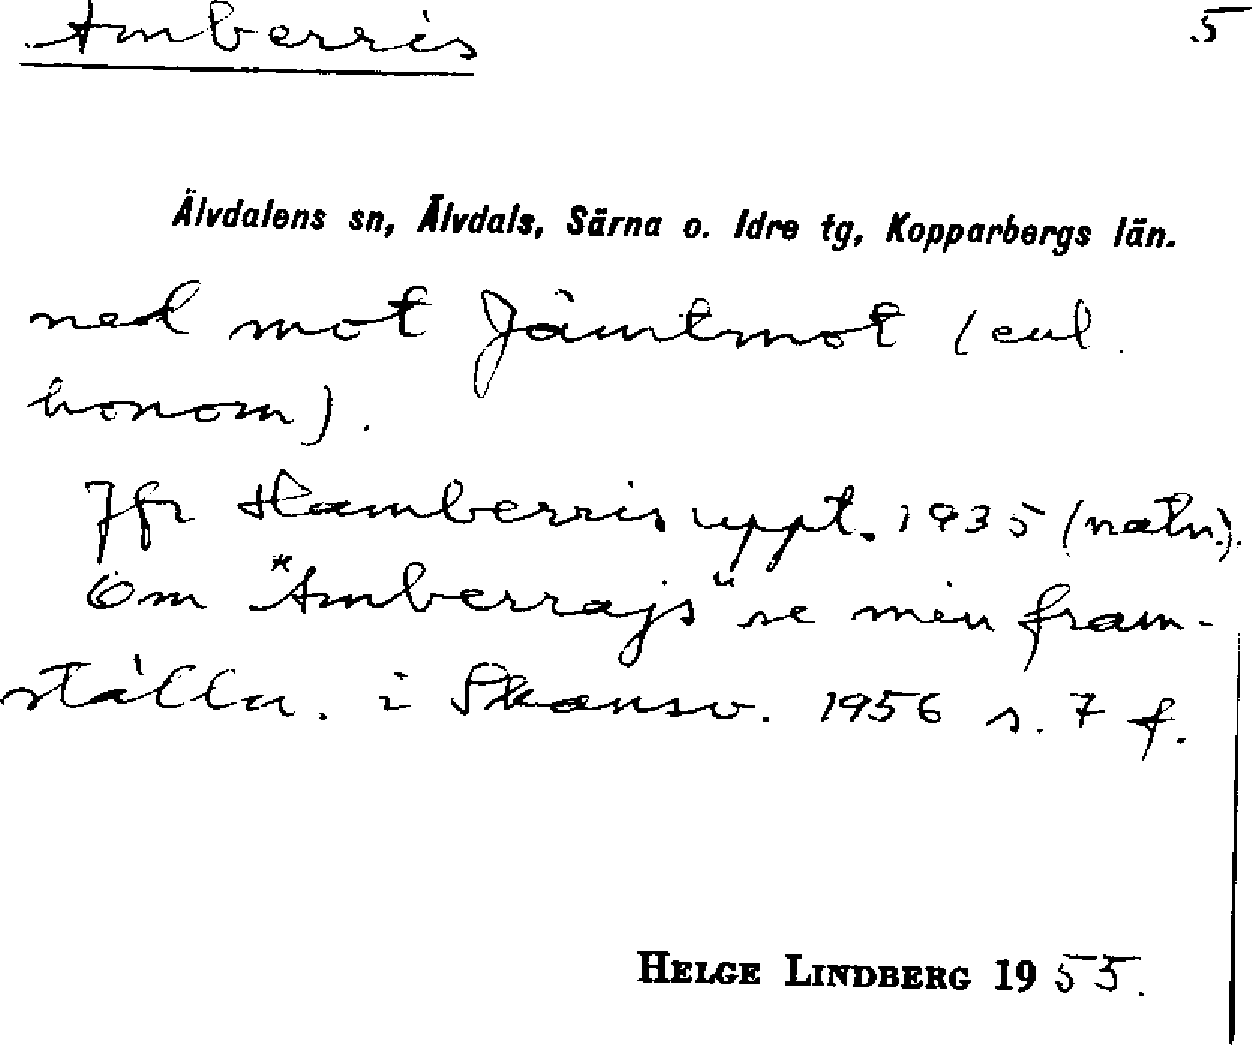 Amberris 5
Älvdalens sn, Älvdals, Särna o. Idre tg, Kopparbergs län.
ned mot Jämtmot (enl.
honom).
Jfr Hamberris uppt. 1935 (natn.).
Om "Amberrajs" se min fram-
ställn. i Skansv. 1956 s. 7 f.
HELGE LINDBERG 1955.